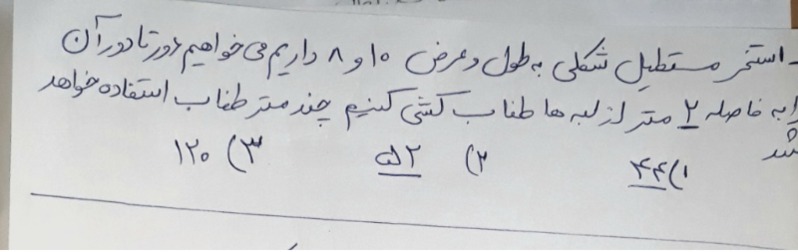 - استخر مستطیل شکلی به طول و عرض ۱۰ و ۸ داریم می‌خواهیم دور تا دور آن
را به فاصله ۲ متر از لبه ها طناب کشی کنیم چند متر طناب استفاده خواهد
شد
۱) ۴۴ ۲) ۵۲ ۳) ۱۲۰